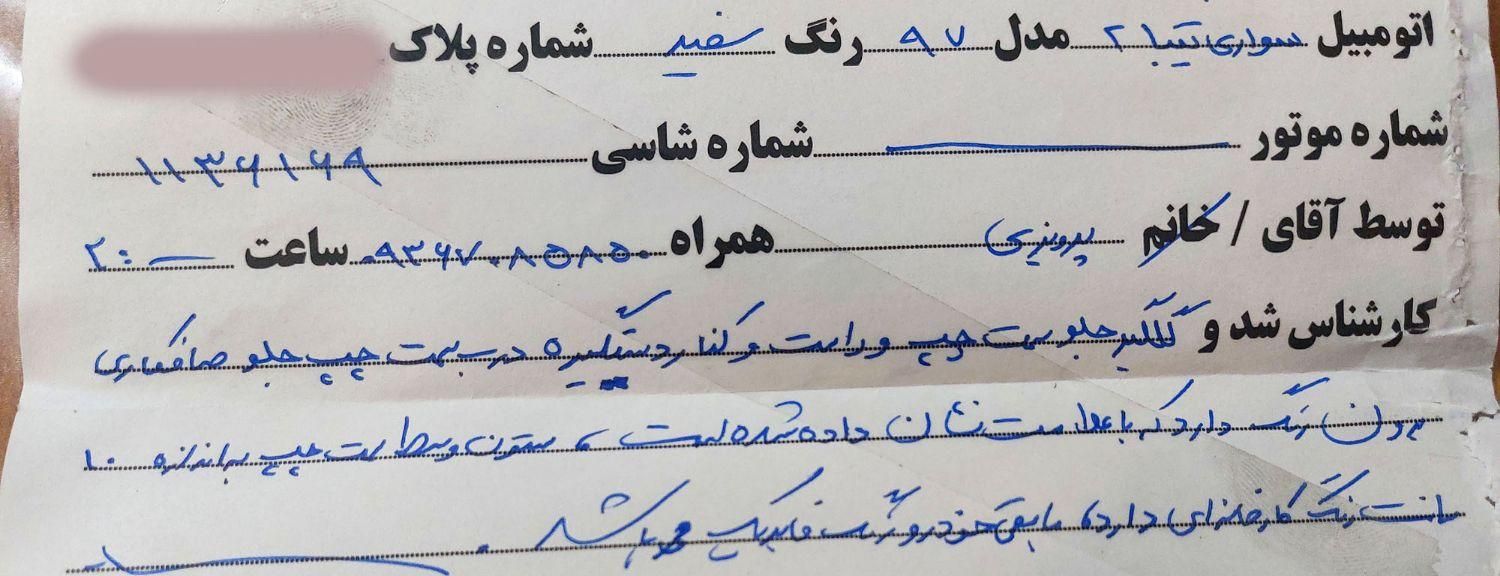 اتومبیل سواری تیبا ۲ مدل ۹۷ رنگ سفید شماره پلاک
شماره موتور شماره شاسی ۱۱۳۶۱۶۹
توسط آقای / خانم پرویزی همراه ۰۹۳۶۷۰۸۵۸۵۰ ساعت ۲:۰۰
کارشناس شد و گلگیر جلو سمت چپ و راست و کنار دستگیره درب سمت چپ جلو صافکاری
بدون رنگ دارد که با علامت نشان داده شده است، ستون وسط سمت چپ به اندازه ۱۰
سانت رنگ کارخانه‌ای دارد، مابقی خودرو رنگ فابریک می باشد.